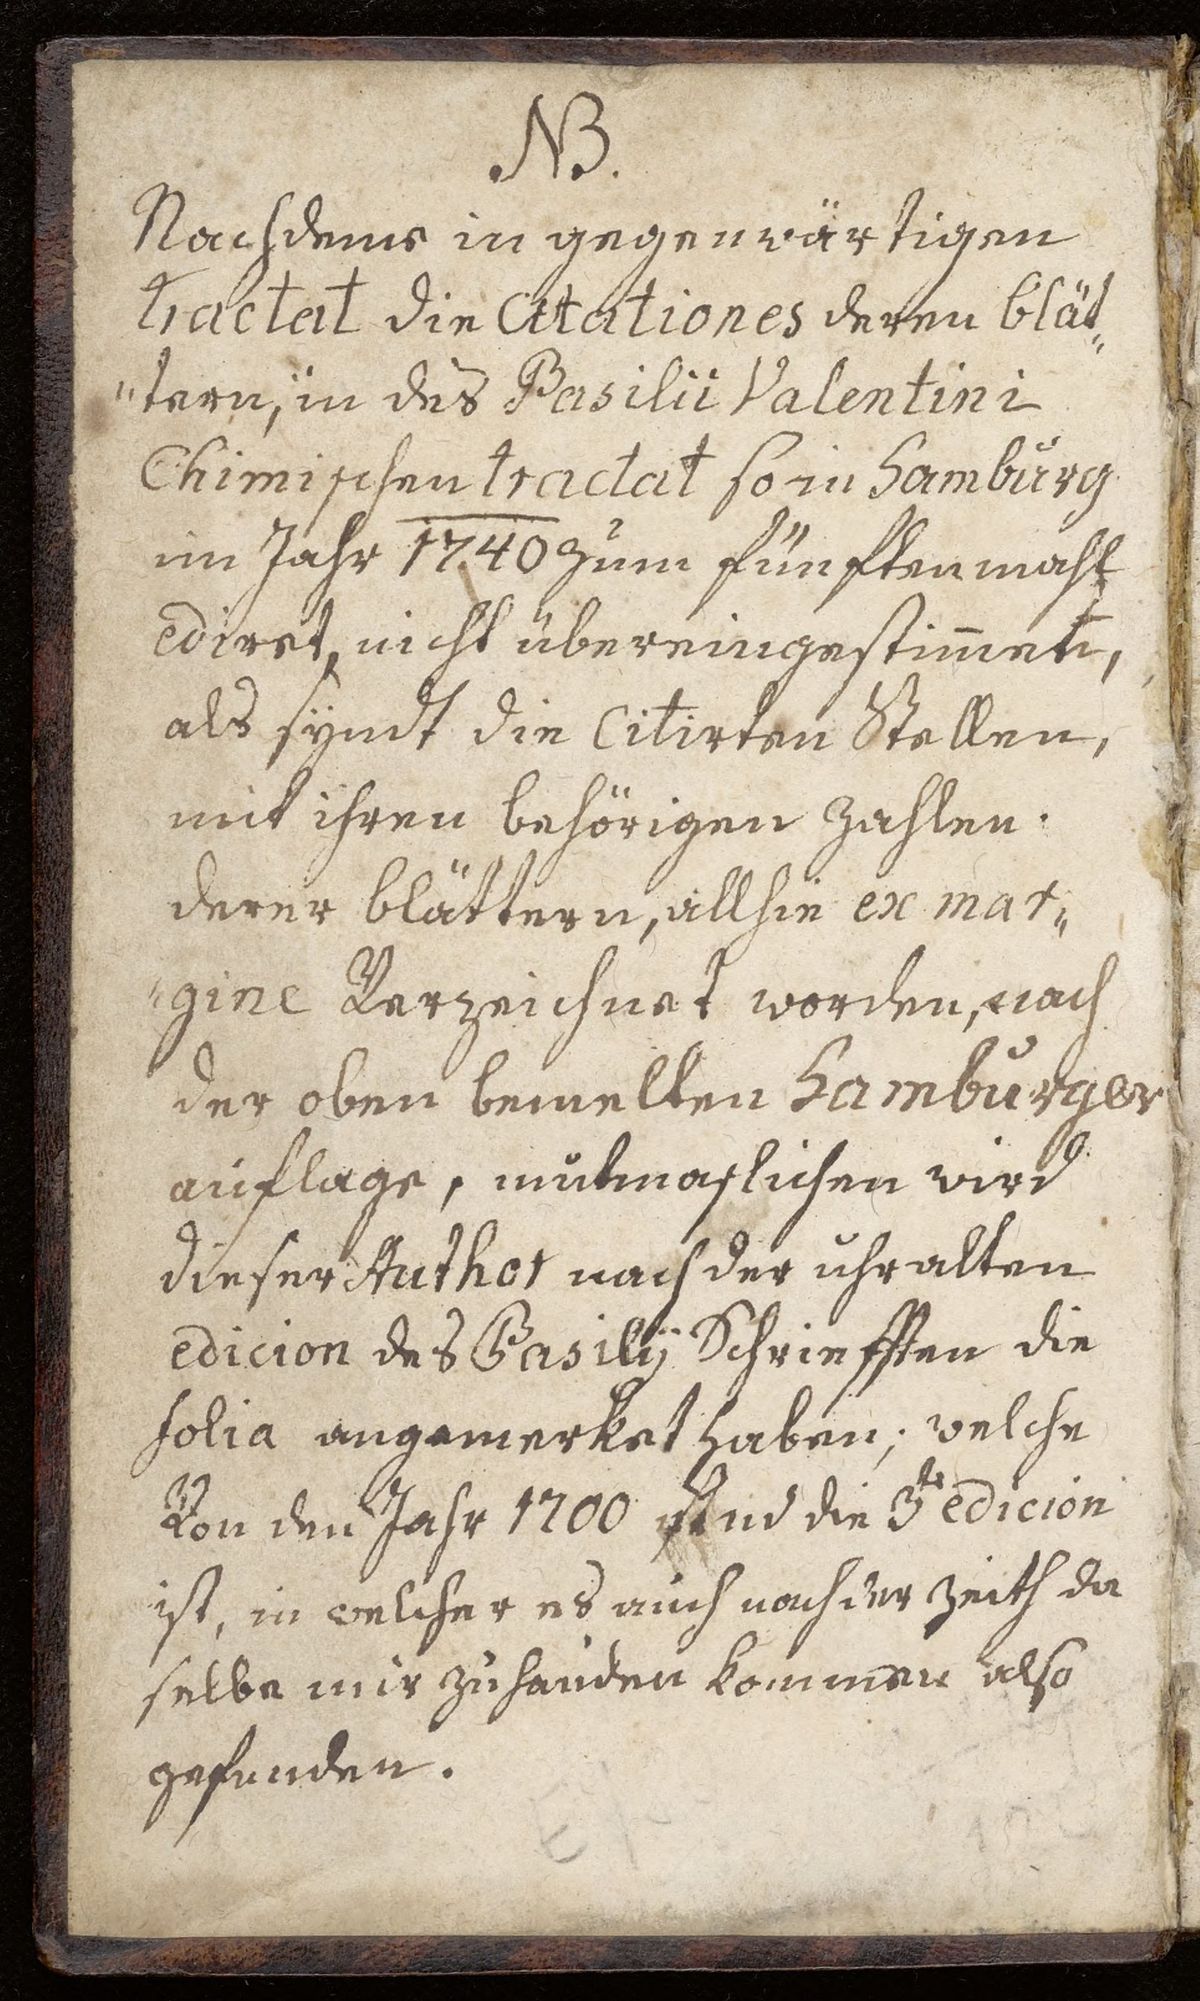 NB.
Nachdeme in gegenwärtigen
tractat die Citationes deren blät„
„tern, in des Basilii Valentini
Chimischen tractat so in Hamburg
im Jahr 1740 zum fünftenmahl
ediret, nicht übereingestim̄et,
als synd die Citirten Stellen,
mit ihren behörigen Zahlen
derer blättern, allhie ex mar„
„gine Verzeichnet worden, nach
der oben bemelten Hamburger
auflage, mutmaslichen wird
dieser Author nach der uhralten
edicion des Basilij Schriefften die
folia angemerket haben, welche
Von den Jahr 1700 und die 3te edicion
ist, in welcher es auch nach der Zeith da
selbe mir zuhanden kommen also
gefunden.